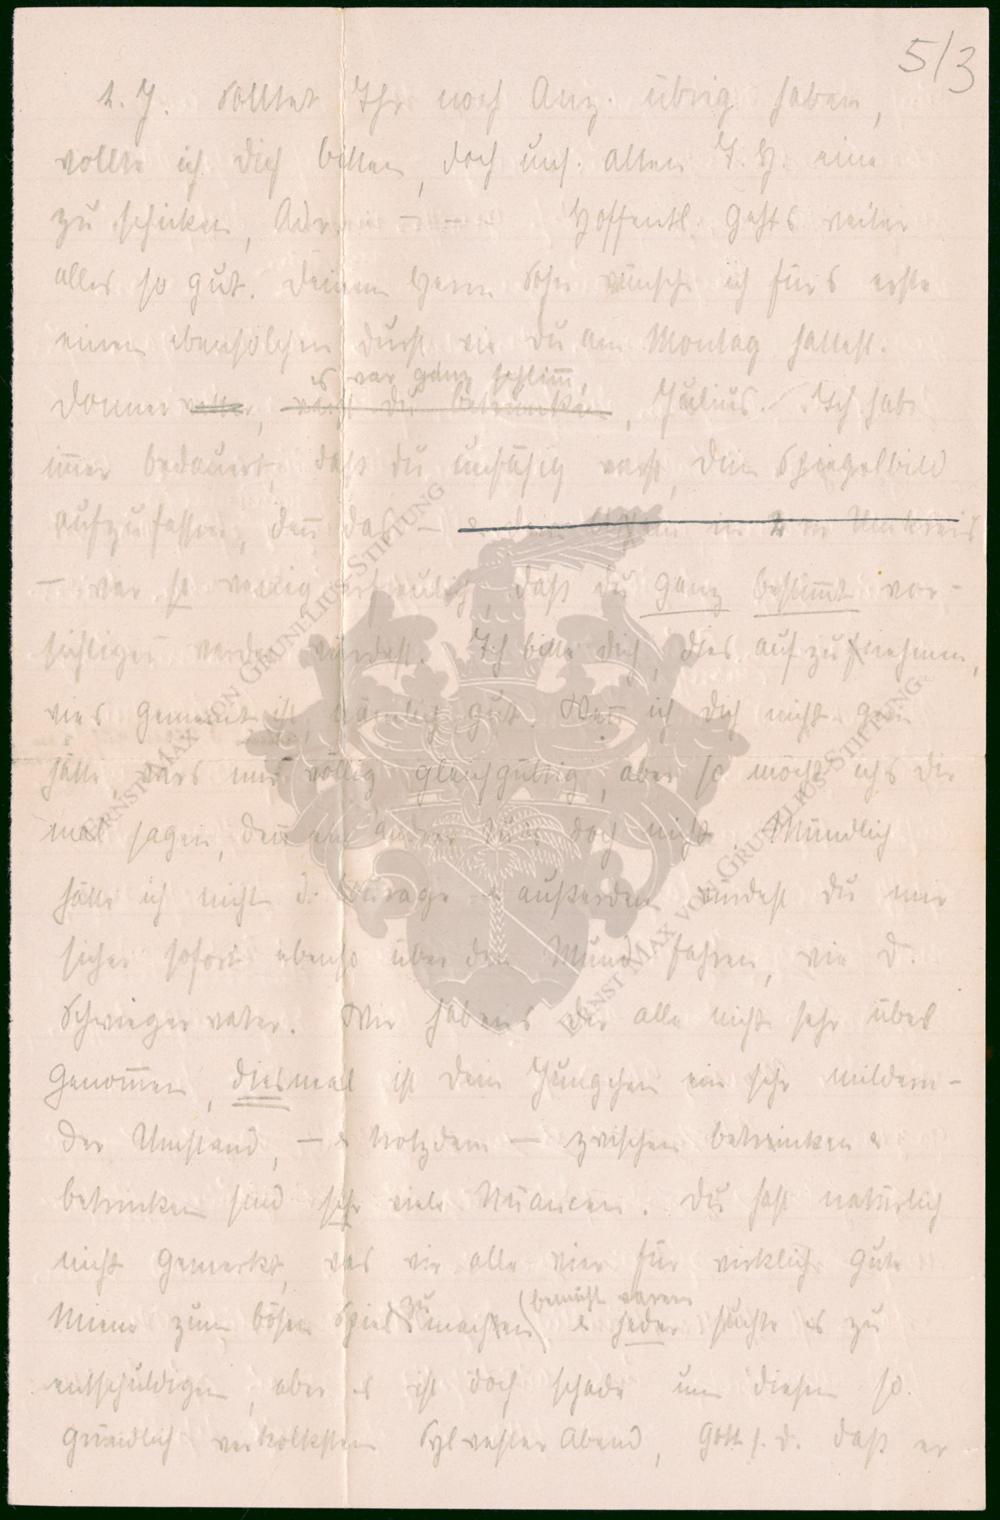 5/3
l. J. Solltet Ihr noch Anz. übrig haben,
wollte ich Dich bitten, doch uns. alten T. H. eine
zu schicken, Hoffentl. gehts weiter
alles so gut. Deinem Herrn Sohn wünsche ich fürs erste
einen ebensolchen Durst wie Du am Montag hattest.
es war ganz schlimm,
Donnerwetter, warst Du betrunken, Julius. Ich habe
immer bedauert, daß Du unfähig warst, Dein Spiegelbild
aufzufassen, denn das – im Umkreis
– war so wenig erfreulich, daß Du ganz bestimmt vor-
sichtiger werden würdest. Ich bitte Dich, dies aufzunehmen,
wies gemeint ist, nämlich gut. Wenn ich Dich nicht gern
hätte, wärs mir völlig gleichgültig, aber so möcht ichs Dir
mal sagen, denn ein andrer tuts doch nicht. Mündlich
hätte ich nicht d. Courage & außerdem würdest Du mir
sicher sofort ebenso über den Mund fahren, wie d.
Schwiegervater. Wir habens Dir alle nicht sehr übel
genommen, diesmal ist Dein Jungchen ein sehr mildern-
der Umstand, – & trotzdem – zwischen betrinken &
betrinken sind sehr viele Nüancen. Du hast natürlich
nicht gemerkt, was wir alle vier für wirklich gute
Miene zum bösen Spiel zu machen (bemüht waren & jeder suchte es zu
entschuldigen, aber es ist doch schade um diesen so
gründlich verkorksten Sylvester Abend, Gott s. D. daß er
ERNST MAX VON GRUNELIUS STIFTUNG
ERNST MAX VON GRUNELIUS STIFTUNG